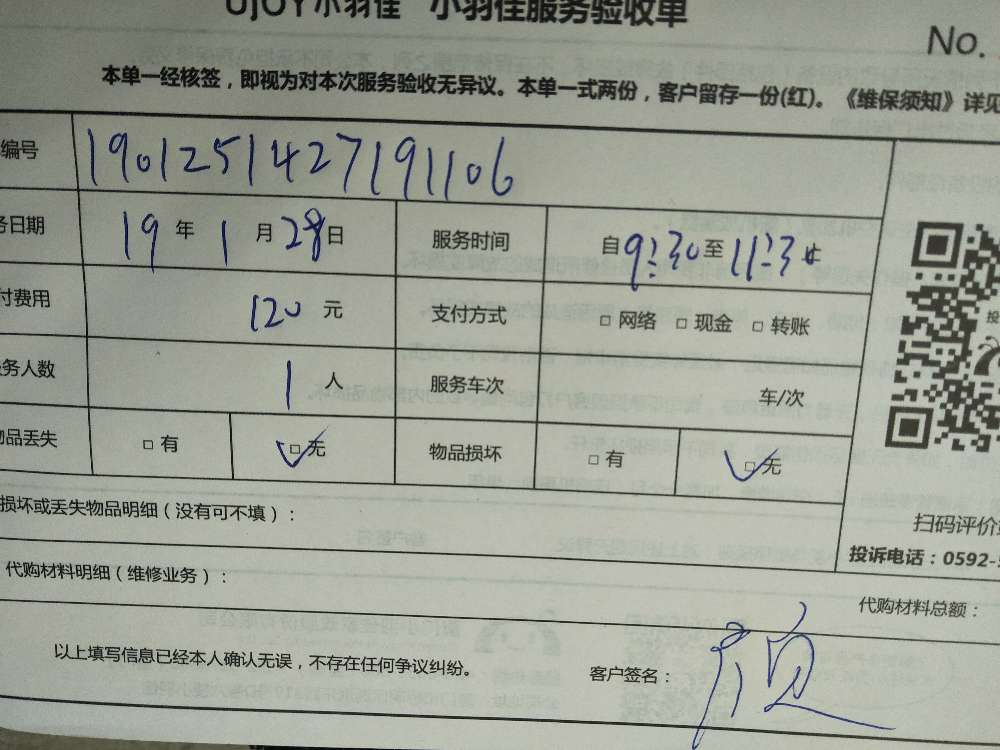 UJOY小羽佳 小羽佳服务验收单
No.
本单一经核签，即视为对本次服务验收无异议。本单一式两份，客户留存一份(红)。《维保须知》详见
编号 1901251427191106
务日期 19 年 1 月 28 日 服务时间 自 9:30 至 11:3
付费用 120 元 支付方式 □ 网络 □ 现金 □ 转账
务人数 1 人 服务车次 车/次
物品丢失 □ 有 □ 无 物品损坏 □ 有 □ 无
损坏或丢失物品明细（没有可不填）：
扫码评价
投诉电话：0592-
代购材料明细（维修业务）：
代购材料总额：
以上填写信息已经本人确认无误，不存在任何争议纠纷。 客户签名：